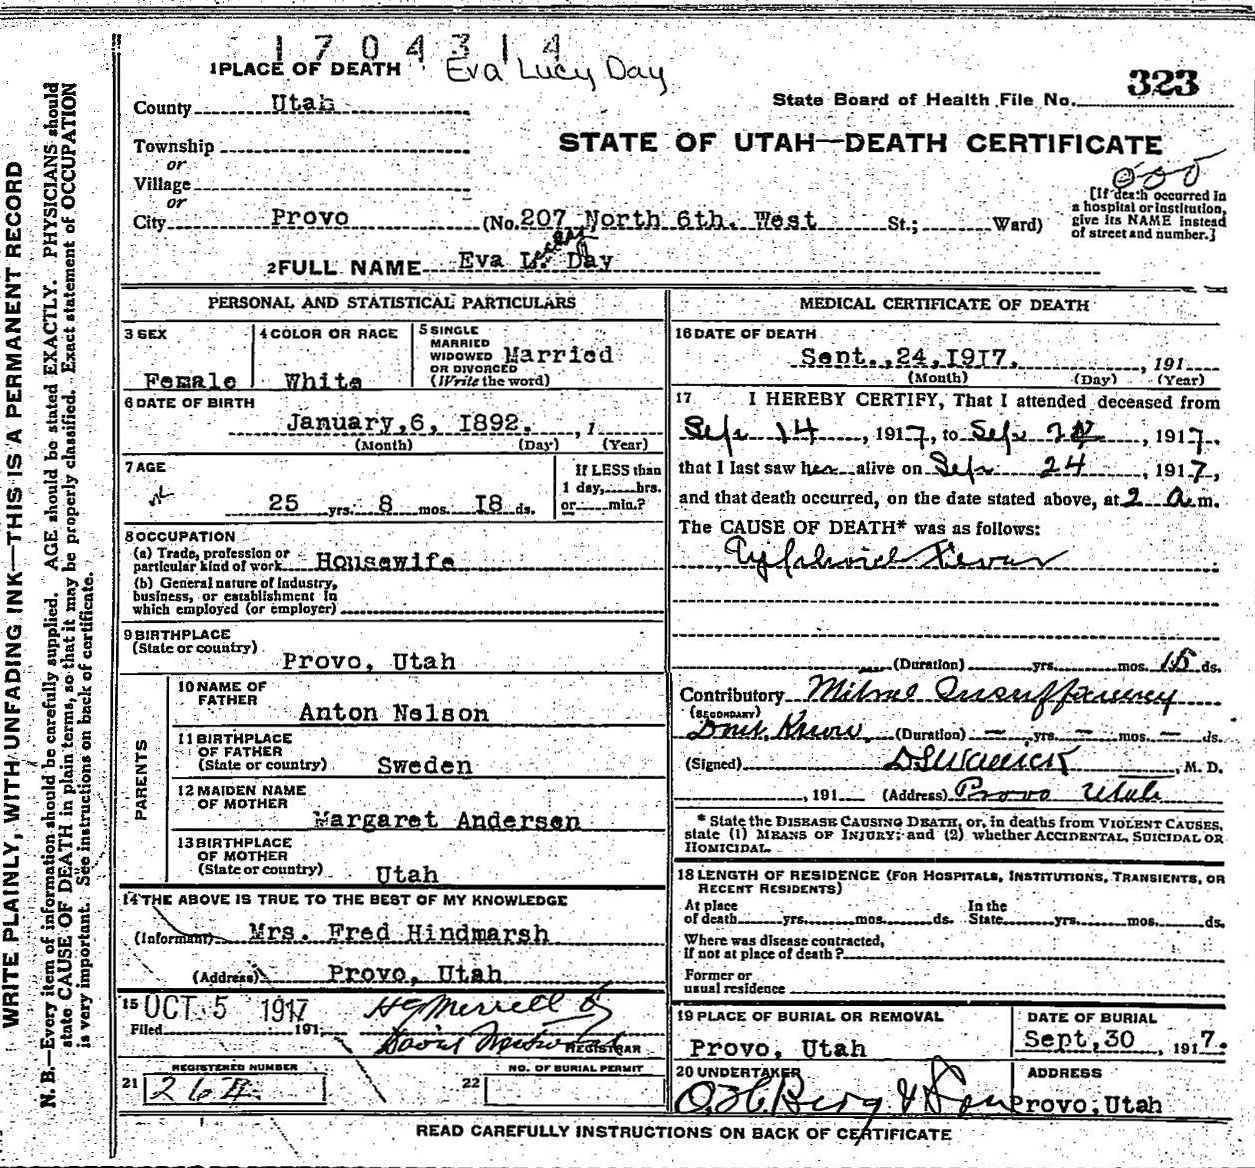 1704314
1 PLACE OF DEATH Eva Lucy Day
County Utah
State Board of Health File No. 323
Township
or
STATE OF UTAH—DEATH CERTIFICATE
Village
or
City Provo (No. 207 North 6th. West St.; Ward)
[If death occurred in
a hospital or institution,
give its NAME instead
of street and number.]
2 FULL NAME Eva L. Day
PERSONAL AND STATISTICAL PARTICULARS
3 SEX
Female
4 COLOR OR RACE
White
5 SINGLE
MARRIED
WIDOWED
OR DIVORCED
(Write the word)
Married
6 DATE OF BIRTH
January, 6, 1892. , 1
(Month) (Day) (Year)
7 AGE
25 yrs. 8 mos. 18 ds.
If LESS than
1 day, hrs.
or min.?
8 OCCUPATION
(a) Trade, profession or
particular kind of work Housewife
(b) General nature of Industry,
business, or establishment in
which employed (or employer)
9 BIRTHPLACE
(State or country)
Provo, Utah
PARENTS
10 NAME OF
FATHER
Anton Nelson
11 BIRTHPLACE
OF FATHER
(State or country) Sweden
12 MAIDEN NAME
OF MOTHER
Margaret Andersen
13 BIRTHPLACE
OF MOTHER
(State or country) Utah
14 THE ABOVE IS TRUE TO THE BEST OF MY KNOWLEDGE
(Informant) Mrs. Fred Hindmarsh
(Address) Provo, Utah
15 OCT 5 1917
Filed 191
REGISTRAR
REGISTERED NUMBER
21 264
NO. OF BURIAL PERMIT
22
MEDICAL CERTIFICATE OF DEATH
16 DATE OF DEATH
Sept., 24, 1917. , 191
(Month) (Day) (Year)
17 I HEREBY CERTIFY, That I attended deceased from
Sep 14 , 1917, to Sep 24 , 1917.,
that I last saw her alive on Sep 24 , 1917,
and that death occurred, on the date stated above, at 2 a.m.
The CAUSE OF DEATH* was as follows:
Typhoid Fever
(Duration) yrs. mos. 15 ds.
Contributory Mitral Insufficiency
(SECONDARY)
Dont Know (Duration) — yrs. — mos. — ds.
(Signed) , M. D.
, 191 (Address) Provo Utah
* State the DISEASE CAUSING DEATH, or, in deaths from VIOLENT CAUSES,
state (1) MEANS OF INJURY; and (2) whether ACCIDENTAL, SUICIDAL OR
HOMICIDAL.
18 LENGTH OF RESIDENCE (FOR HOSPITALS, INSTITUTIONS, TRANSIENTS, OR
RECENT RESIDENTS)
At place
of death yrs. mos. ds.
In the
State yrs. mos. ds.
Where was disease contracted,
If not at place of death?
Former or
usual residence
19 PLACE OF BURIAL OR REMOVAL
Provo, Utah
DATE OF BURIAL
Sept, 30 , 1917.
20 UNDERTAKER
Berg & Son
ADDRESS
Provo, Utah
READ CAREFULLY INSTRUCTIONS ON BACK OF CERTIFICATE
WRITE PLAINLY, WITH UNFADING INK—THIS IS A PERMANENT RECORD
N. B.—Every item of information should be carefully supplied. AGE should be stated EXACTLY. PHYSICIANS should
state CAUSE OF DEATH in plain terms, so that it may be properly classified. Exact statement of OCCUPATION
is very important. See instructions on back of certificate.